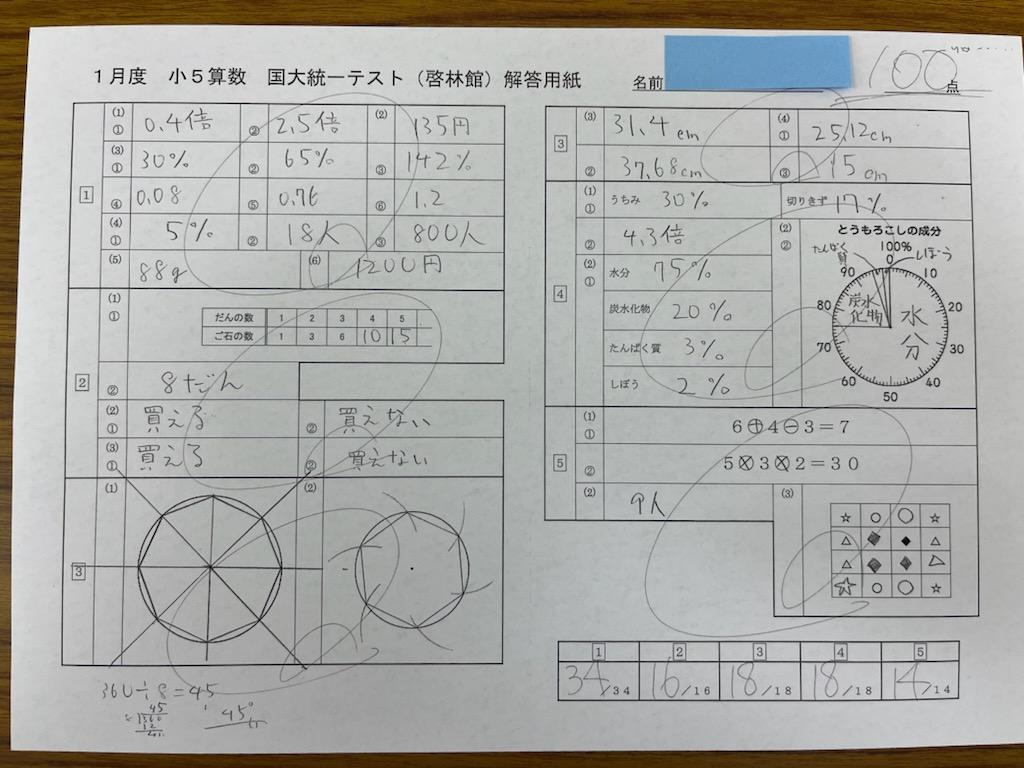 1月度 小5算数 国大統一テスト（啓林館）解答用紙 名前 100点
1
(1) ① 0.4倍 ② 2.5倍 (2) 135円
(3) ① 30% ② 65% ③ 142%
④ 0.08 ⑤ 0.76 ⑥ 1.2
(4) ① 5% ② 18人 ③ 800人
(5) 88g (6) 1200円
2
(1) ①
だんの数 1 2 3 4 5
ご石の数 1 3 6 10 15
② 8だん
(2) ① 買える ② 買えない
(3) ① 買える ② 買えない
3
(1) (2)
360÷8=45
45
360
32
45°
3
(3) 31.4cm (4) ① 25.12cm
② 37.68cm ③ 15cm
4
(1) ① うちみ 30% 切りきず 17%
② 4.3倍
(2) ① 水分 75%
炭水化物 20%
たんぱく質 3%
しぼう 2%
(2) ② とうもろこしの成分
たんぱく質 100% しぼう
90 0 10
80 炭水化物 水分 20
70 30
60 40
50
5
(1) ① 6+4−3=7
② 5×3×2=30
(2) 9人 (3)
☆ ○ ○ ☆
△ ◆ ◆ △
△ ◆ ◆ △
☆ ○ ○ ☆
1 2 3 4 5
34/34 16/16 18/18 18/18 14/14